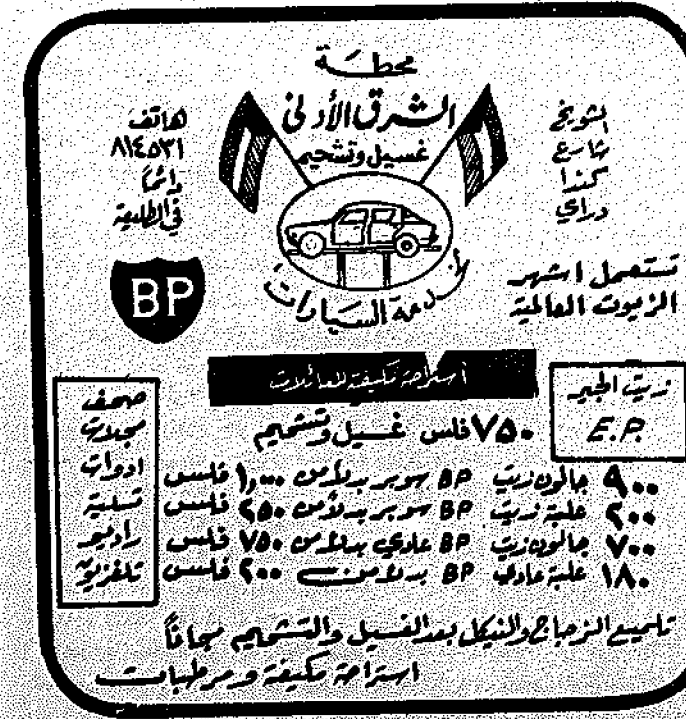 محطة
الشرق الأدنى
غسيل وتشحيم
لخدمة السيارات
الشويخ
شارع
كندا
دراي
هاتف
٨١٤٥٣١
دائماً
في الطليعة
تستعمل اشهر
الزيوت العالمية
BP
استراحة مكيفة للعائلات
زيت الجير
E.P.
صحف
مجلات
ادوات
تسلية
راديو
تلفزيون
٧٥٠ فلس غسيل وتشحيم
٩٠٠ جالون زيت BP سوبر بدلاً من ١,٠٠٠ فلس
٢٠٠ علبة زيت BP سوبر بدلاً من ٢٥٠ فلس
٧٠٠ جالون زيت BP عادي بدلاً من ٧٥٠ فلس
١٨٠ علبة عادي BP بدلاً من ٢٠٠ فلس
تلميع الزجاج والنيكل بعد الغسيل والتشحيم مجاناً
استراحة مكيفة ومرطبات